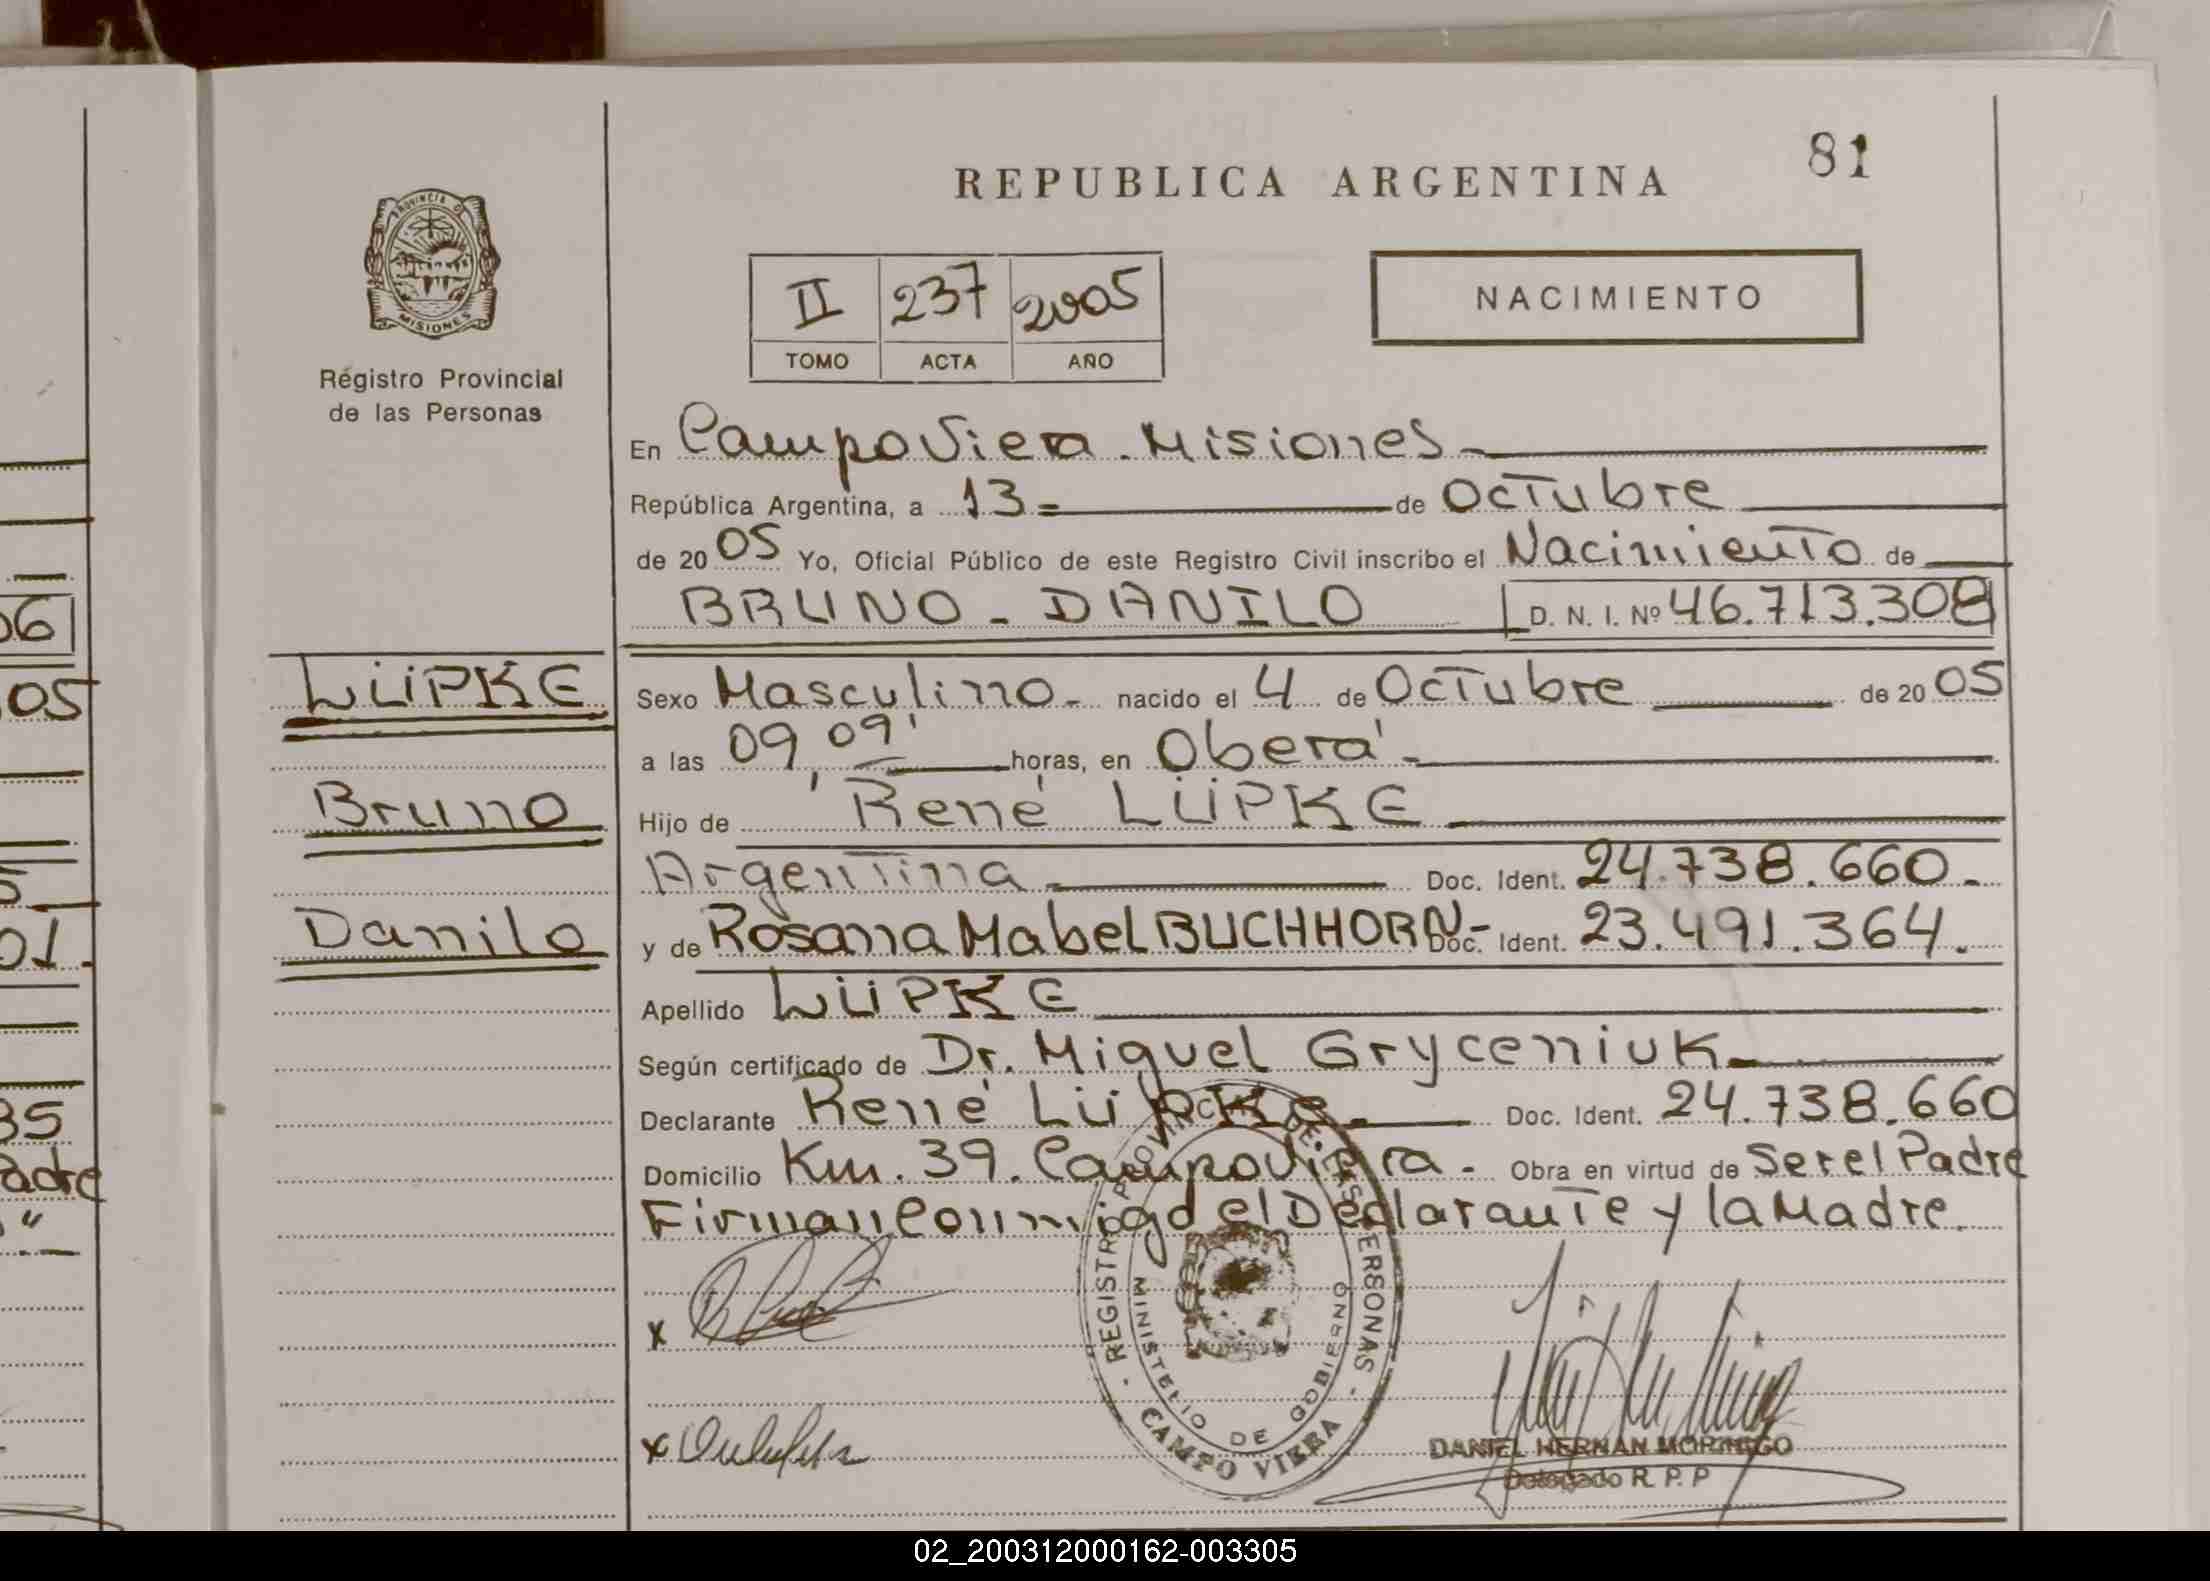 81
REPUBLICA ARGENTINA
PROVINCIA DE
MISIONES
Registro Provincial
de las Personas
II 237 2005
TOMO ACTA AÑO
NACIMIENTO
En Campo Viera - Misiones
República Argentina, a 13 = de Octubre
de 2005 Yo, Oficial Público de este Registro Civil inscribo el Nacimiento de
BRUNO - DANILO D. N. I. Nº 46.713.308
LÜPKE
Bruno
Danilo
Sexo Masculino - nacido el 4 de Octubre de 2005
a las 09,09' horas, en Oberá -
Hijo de René LÜPKE
Argentina Doc. Ident. 24.738.660.-
y de Rosana Mabel BUCHHORN - Doc. Ident. 23.491.364.
Apellido LÜPKE
Según certificado de Dr. Miguel Gryceniuk
Declarante René Lüpke. Doc. Ident. 24.738.660
Domicilio Km. 39. Campo Viera - Obra en virtud de Ser el Padre
Firman Conmigo el Declarante y la Madre.
REGISTRO PROVINCIAL DE LAS PERSONAS
MINISTERIO DE GOBIERNO
CAMPO VIERA
x
x
DANIEL HERNAN MORINIGO
Delegado R. P. P
06
05
5
01.
35
Padre
"
02_200312000162-003305